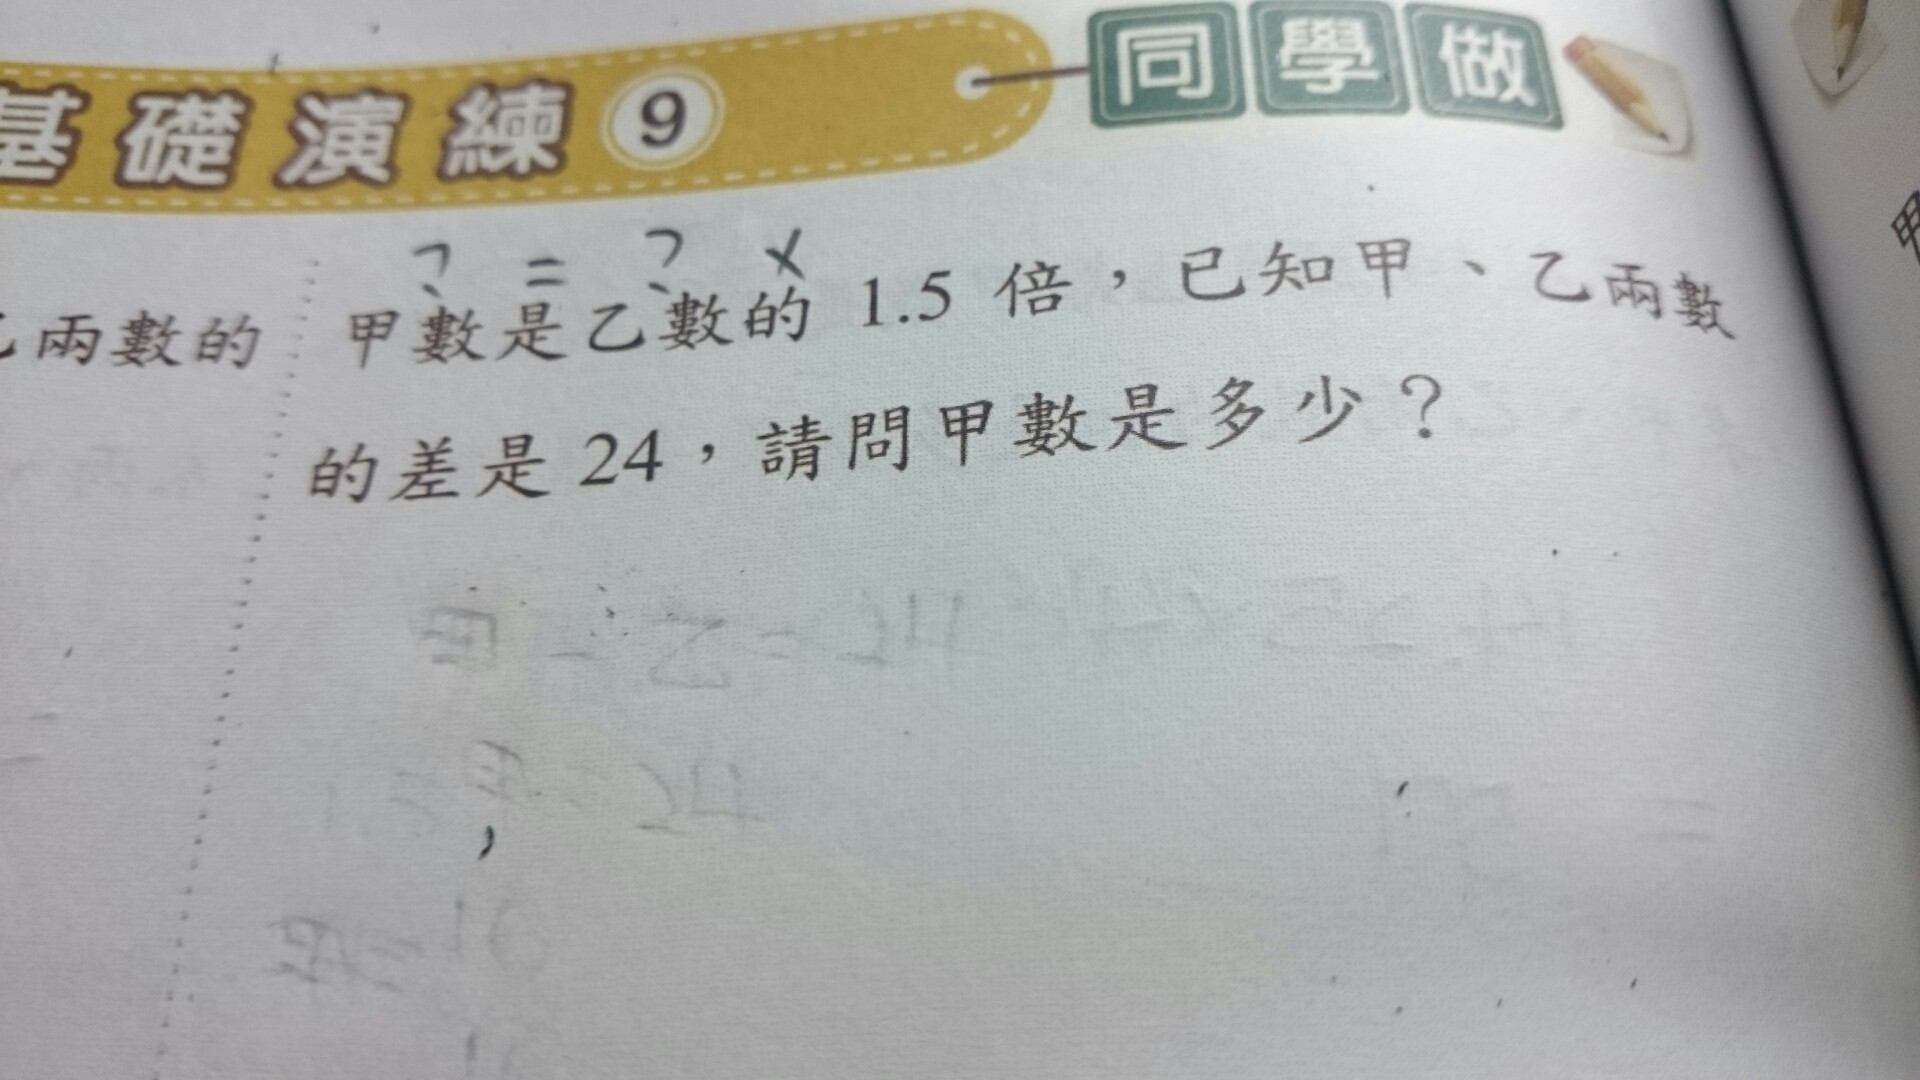 基礎演練 9 同學做
? = ? ×
兩數的 甲數是乙數的 1.5 倍，已知甲、乙兩數
的差是 24，請問甲數是多少？
甲 - 乙 = 24
= 24